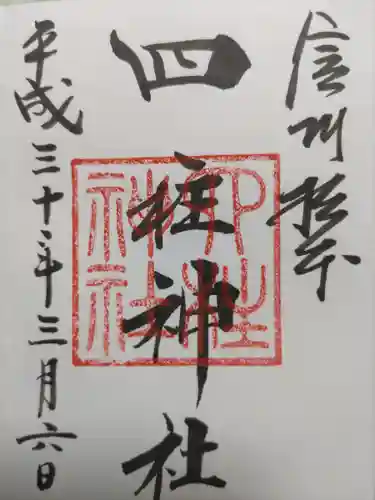 信州松本
四柱神社
四柱神社
平成三十年三月六日